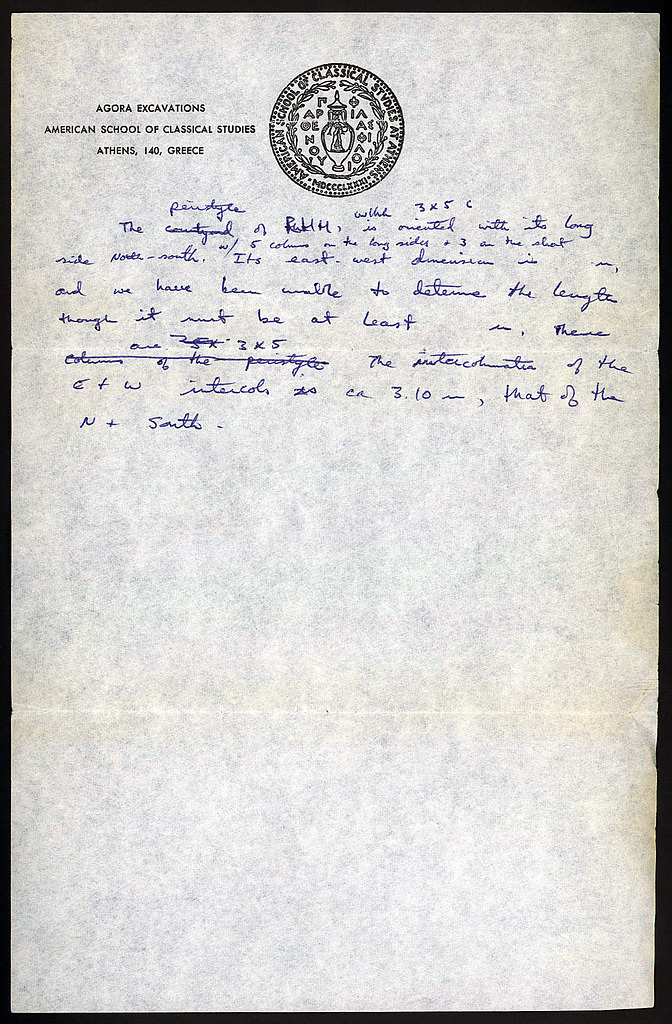 AGORA EXCAVATIONS
AMERICAN SCHOOL OF CLASSICAL STUDIES
ATHENS, 140, GREECE
AMERICAN SCHOOL OF CLASSICAL STUDIES AT ATHENS
ΠΑΡΘΕΝΟΥ ΦΙΛΑΣ ΦΙΟΛ
MDCCCLXXXI
peristyle with 3 x 5 c
The courtyard of is oriented with its long
w/ 5 columns on the long sides + 3 on the short
side North-south. Its east-west dimension is m,
and we have been unable to determine the length
though it must be at least m, There
are 3 x 5
columns of the peristyle The intercolumniation of the
E + W intercols is ca 3.10 m, that of the
N + South -